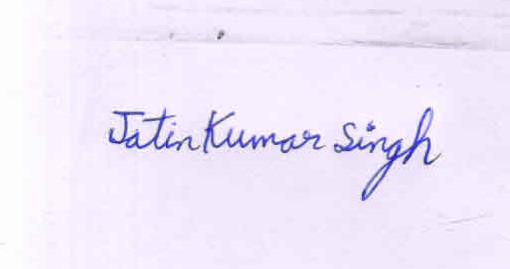 Jatin Kumar Singh